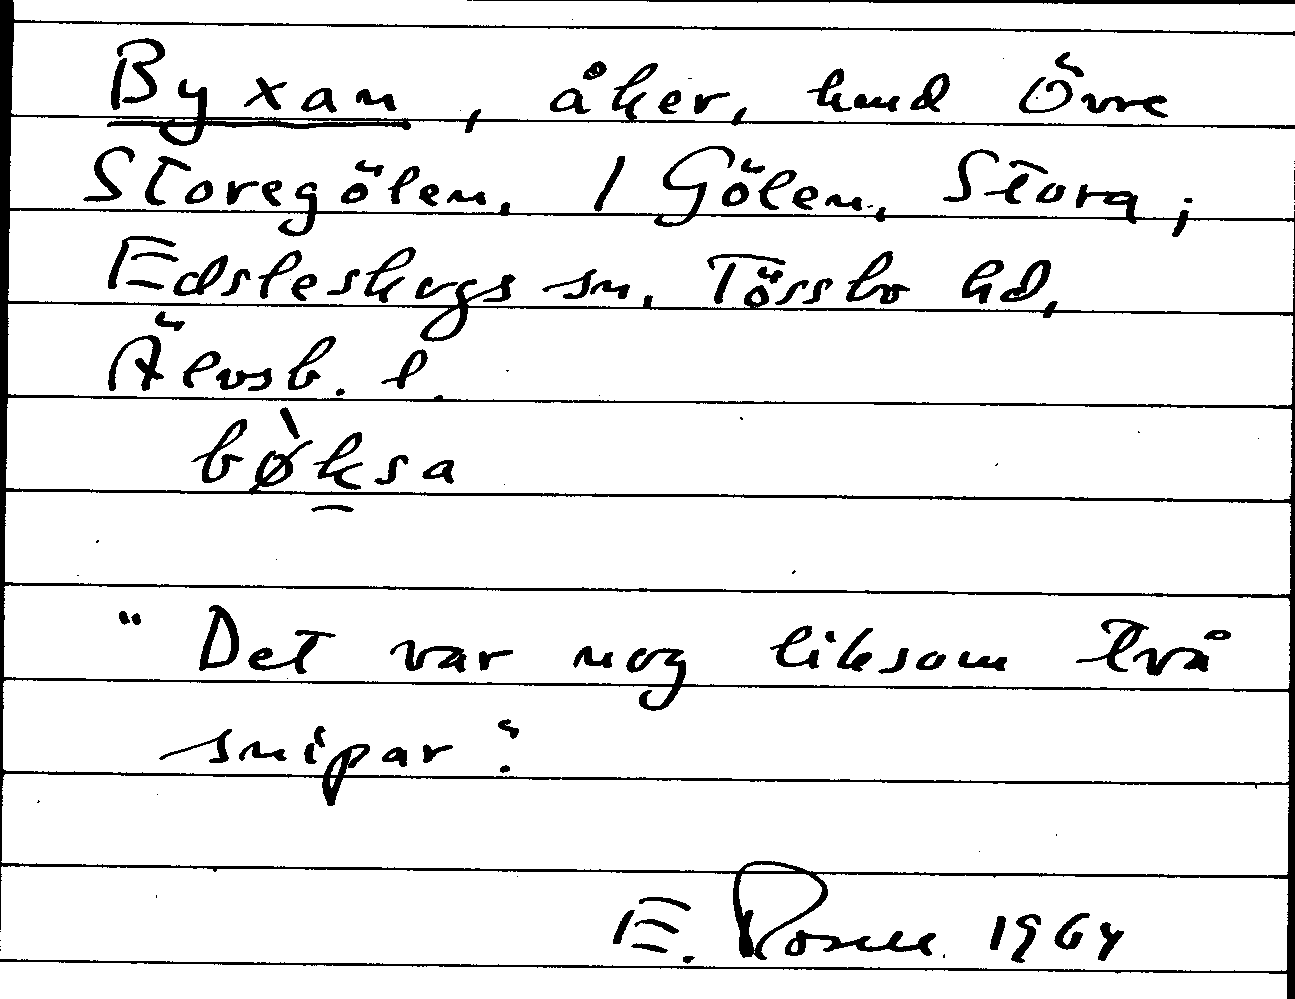 Byxan, åker, hmd Övre
Storegölen. / Gölen, Stora;
Edsleskogs sn. Tössbo hd,
Älvsb. l.
bø̀ksa
"Det var nog liksom två
snipar".
E. Rosell 1964